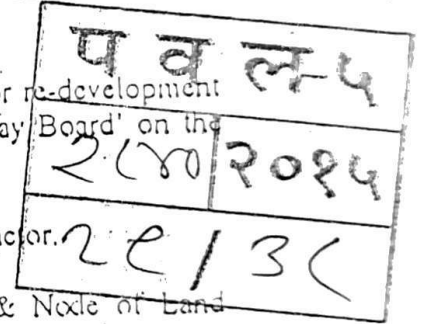 प व ल-५
r re-development
ay Board' on the
२०१५
ctor.
२९/३८
& Node of Land